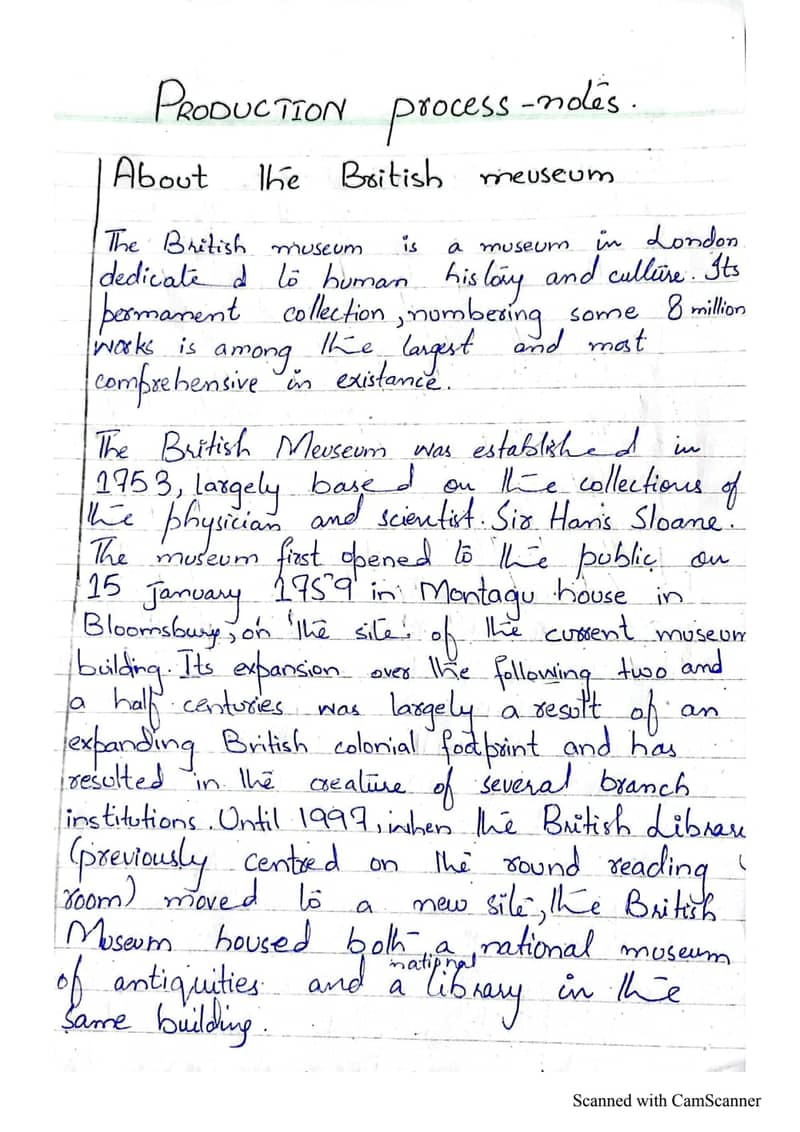 PRODUCTION process-notes.
About the British meuseum
The British museum is a museum in London
dedicate d to human history and culture. Its
permanent collection, numbering some 8 million
works is among the largest and most
comprehensive in existance.
The British Meuseum was established in
1753, largely based on the collections of
the physician and scientist. Sir Hans Sloane.
The museum first opened to the public on
15 January 1759 in Montagu house in
Bloomsbury, on the site of the current museum
building. Its expansion over the following two and
a half centuries was largely a result of an
expanding British colonial footprint and has
resulted in the creature of several branch
institutions. Until 1997, when the British Library
(previously centred on the round reading
room) moved to a new site, the British
Museum housed both a national museum
of antiquities and a national library in the
same building.
Scanned with CamScanner